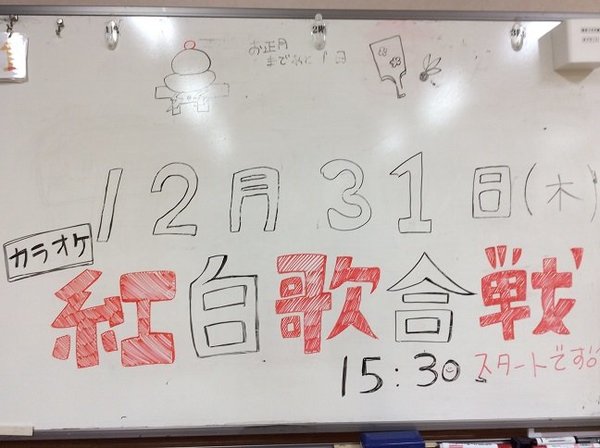 お正月
まであと1日
12月31日(木)
カラオケ
紅白歌合戦
15:30 スタートです